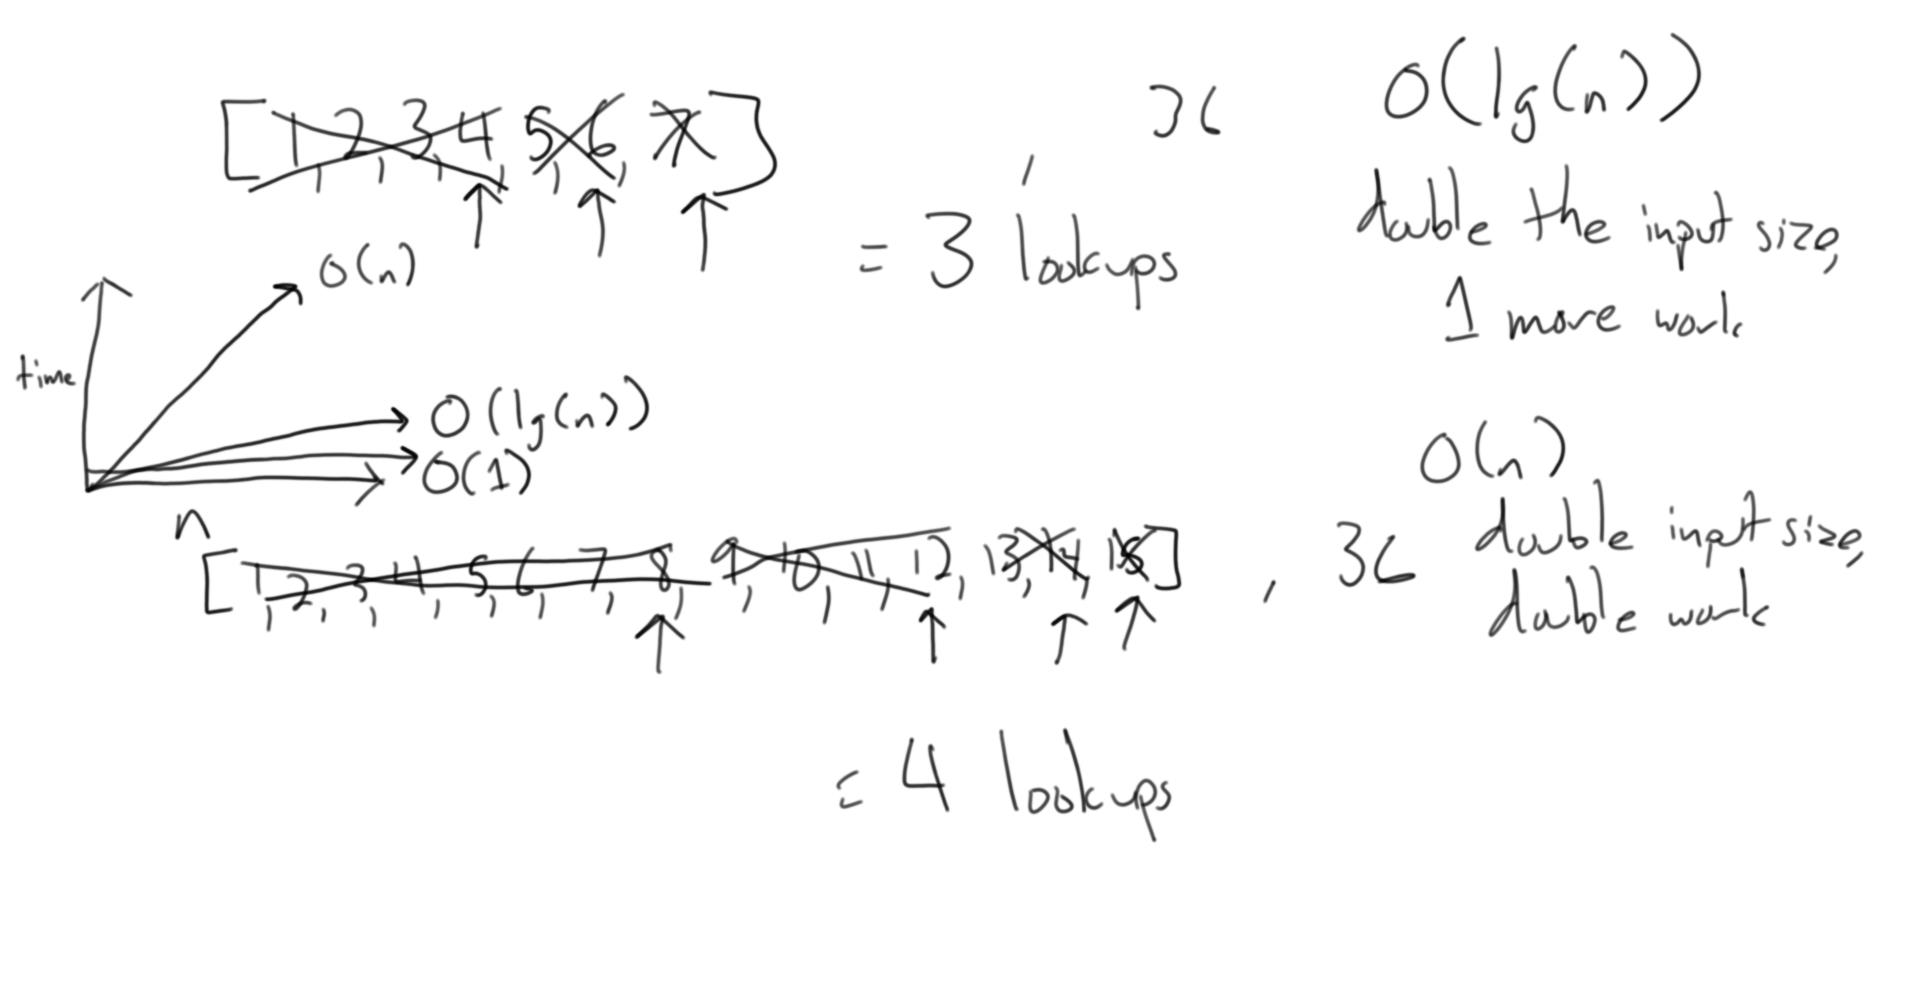 [1, 2, 3, 4, 5, 6, 7] , 36
= 3 lookups
O(lg(n))
double the input size,
1 more work
time
O(n)
O(lg(n))
O(1)
n
[1, 2, 3, 4, 5, 6, 7, 8, 9, 10, 11, 12, 13, 14, 15] , 36
= 4 lookups
O(n)
double input size,
double work